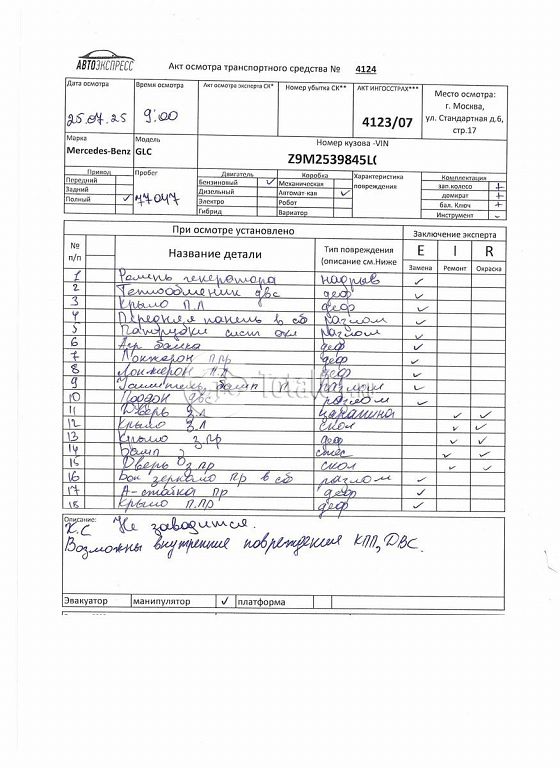 АВТОЭКСПРЕСС
Акт осмотра транспортного средства № 4124
Дата осмотра Время осмотра Акт осмотра эксперта СК* Номер убытка СК** АКТ ИНГОССТРАХ*** Место осмотра:
г. Москва,
ул. Стандартная д.6,
стр.17
25.07.25 9:00 4123/07
Марка Модель Номер кузова -VIN
Mercedes-Benz GLC Z9M2539845L
Привод Пробег Двигатель Коробка Характеристика повреждения Комплектация
Передний Бензиновый ✓ Механическая зап.колесо +
Задний Дизельный Автомат-кая ✓ домкрат +
Полный ✓ 77047 Электро Робот бал. Ключ +
Гибрид Вариатор Инструмент ✓
При осмотре установлено Заключение эксперта
№ п/п Название детали Тип повреждения (описание см.Ниже E I R
Замена Ремонт Окраска
1 Ремень генератора надрыв ✓
2 Теплообменик двс деф ✓
3 Крыло П.Л деф ✓
4 Передняя панель в сб разлом ✓
5 Патрубки сист охл разлом ✓
6 Аир банка деф ✓
7 Лонжерон п пр деф ✓
8 Лонжерон П.Л деф ✓
9 Усилитель бамп разлом ✓
10 Поддон двс разлом ✓
11 Дверь З Л царапина ✓ ✓
12 Крыло З Л скол ✓ ✓
13 Крыло З пр деф ✓ ✓
14 Бамп З ✓ ✓
15 Дверь З пр скол ✓ ✓
16 Бок зеркало пр в сб разлом ✓
17 А-стойка пр деф ✓
18 Крыло П.ПР деф ✓
Описание:
К.С Не заводится.
Возможны внутренние повреждения КПП, ДВС.
Эвакуатор манипулятор ✓ платформа